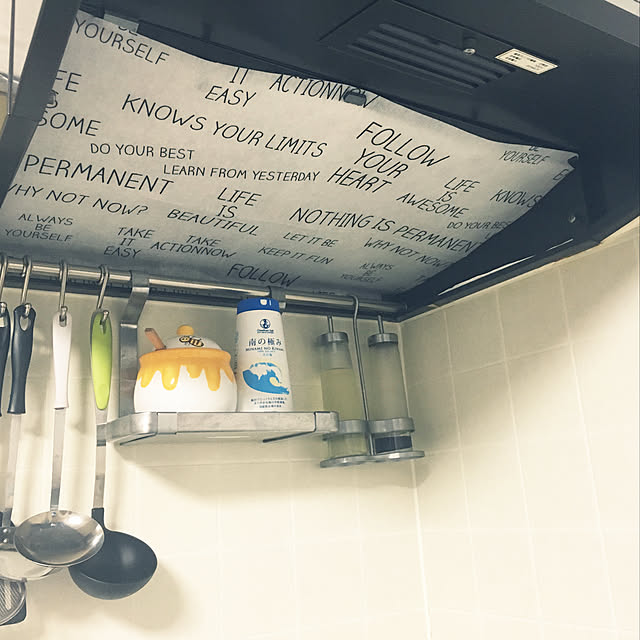 YOURSELF
IT
EASY
ACTIONNOW
KNOWS YOUR LIMITS
SOME
DO YOUR BEST
LEARN FROM YESTERDAY
FOLLOW
YOUR
HEART
YOURSELF
PERMANENT
LIFE
IS
BEAUTIFUL
LIFE
IS
AWESOME
KNOWS
WHY NOT NOW?
NOTHING IS PERMANENT
DO YOUR BEST
ALWAYS
BE
YOURSELF
TAKE
IT
EASY
TAKE
ACTIONNOW
LET IT BE
KEEP IT FUN
WHY NOT NOW
ALWAYS
BE
YOURSELF
FOLLOW
南の極み